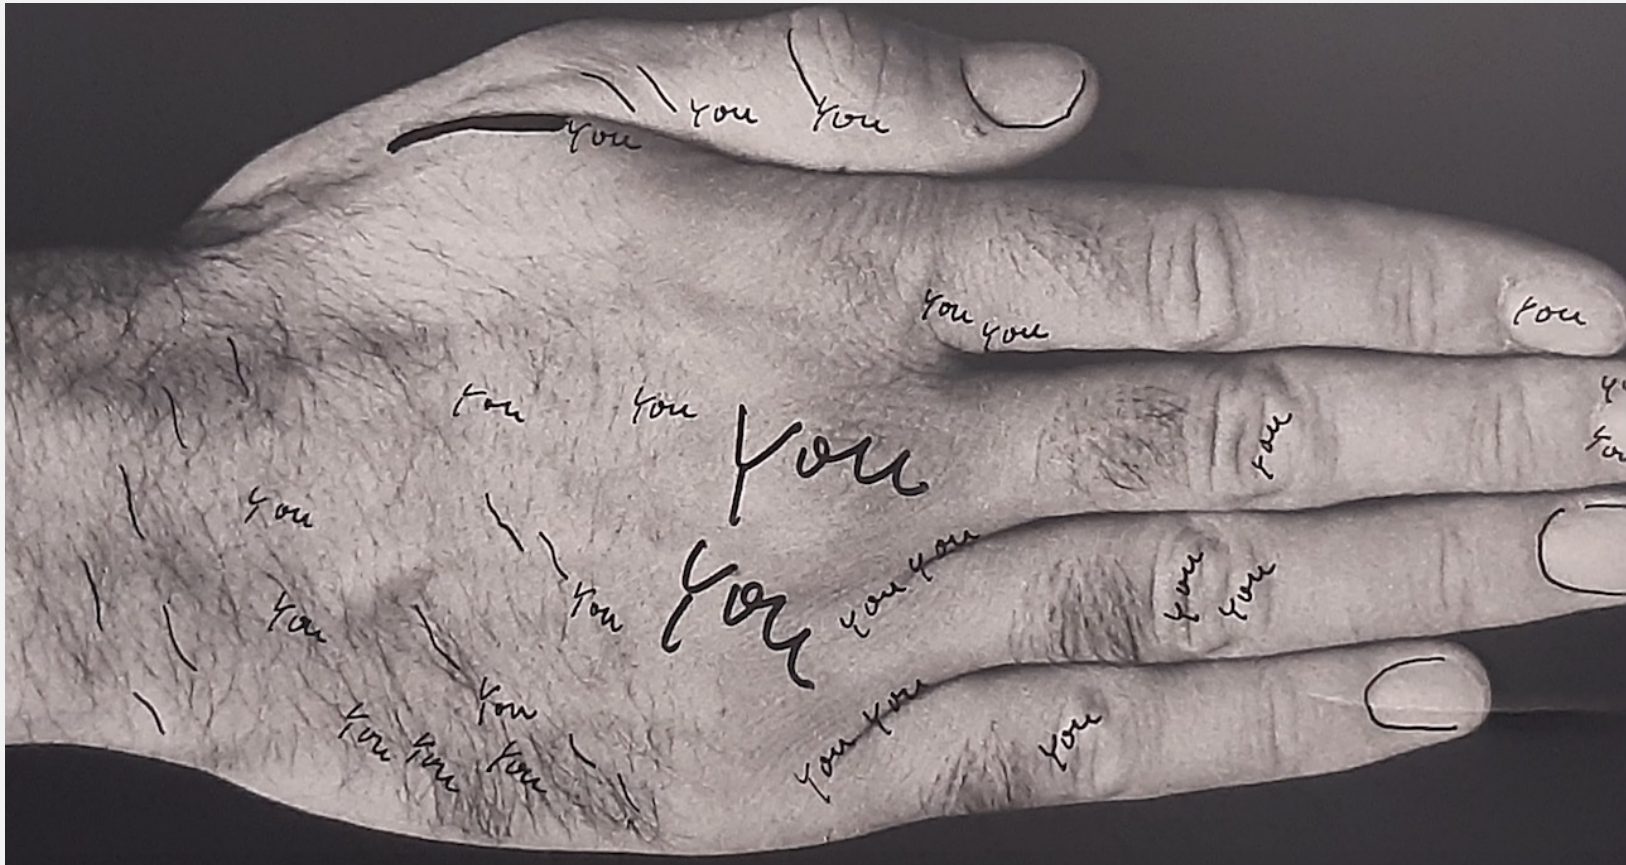 You You
You
You You
You
You
You You
You
You
You
You
You You
You
You
You
You
You
You
You You
You
You
You
You You